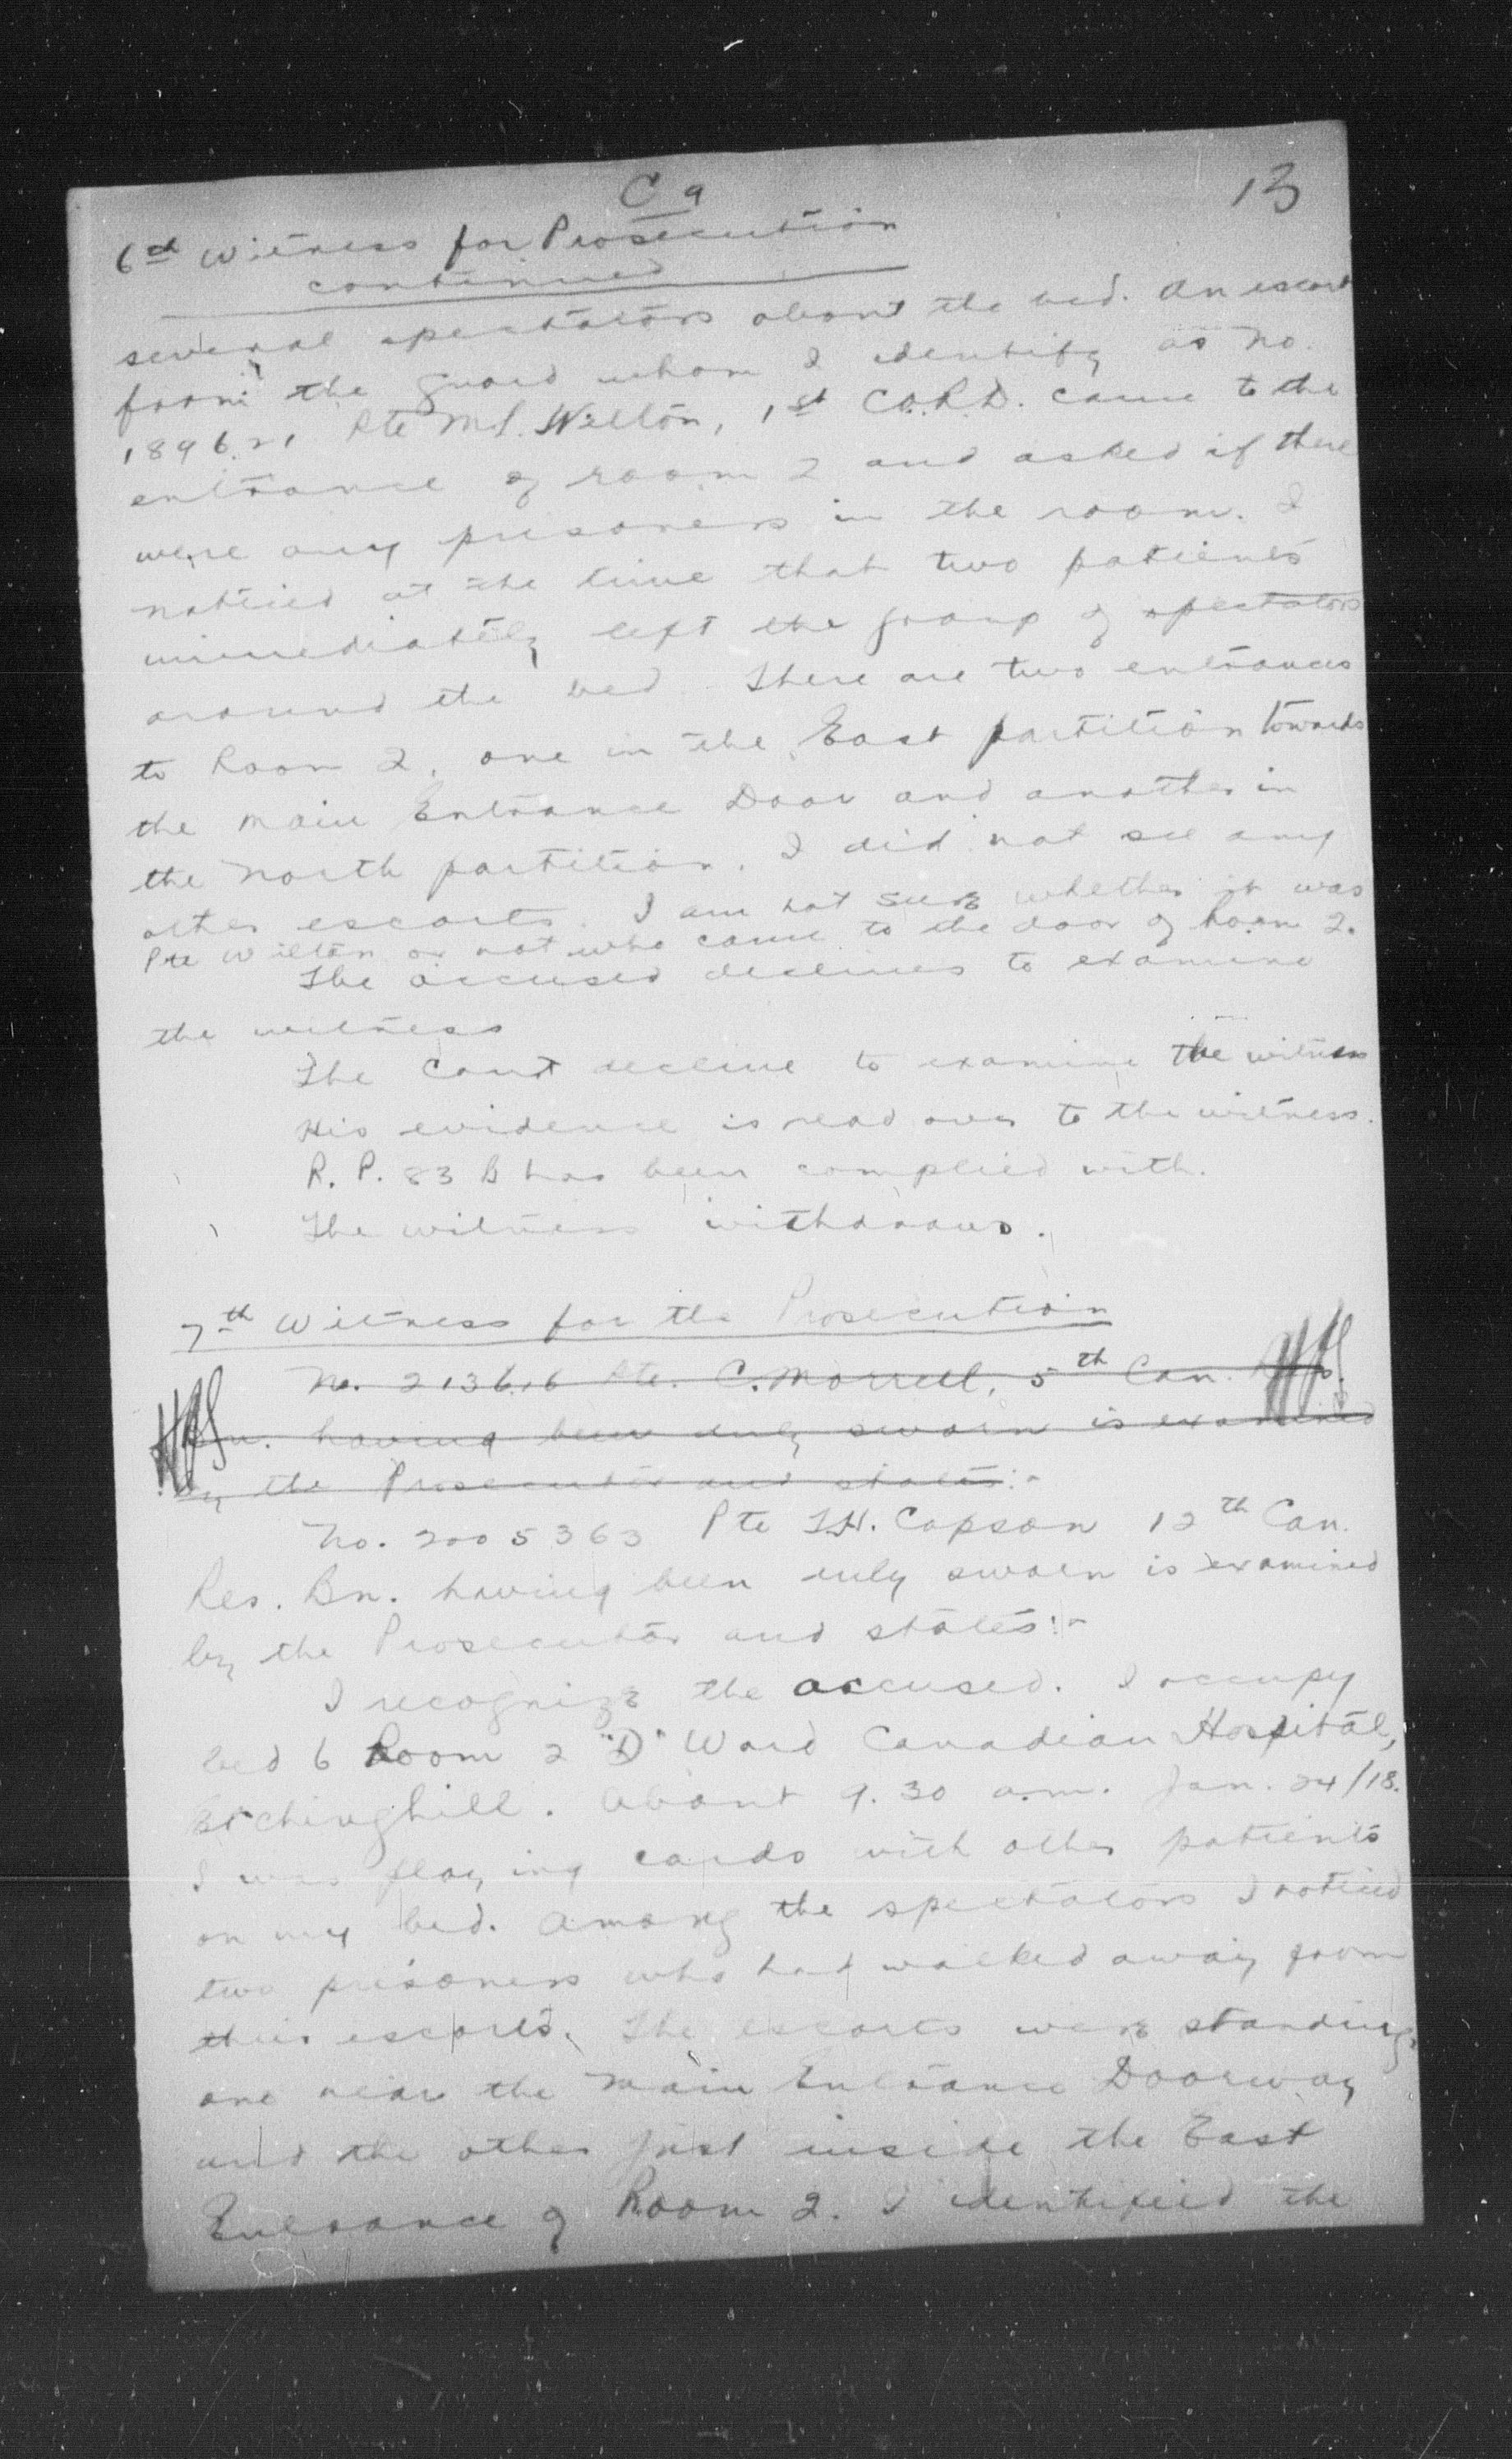 C 9
13
6th Witness for Prosecution
continued
several spectators about the bed. An escort
from the guard whom I identify as No.
189621 Pte M.S. Wilton, 1st C.O.R.D. came to the
entrance of room 2 and asked if there
were any prisoners in the room. I
noticed at the time that two patients
immediately left the group of spectators
around the bed. There are two entrances
to Room 2, one in the East partition towards
the Main Entrance Door and another in
the North partition. I did not see any
other escorts. I am not sure whether it was
Pte Wilton or not who came to the door of Room 2.
The accused declines to examine
the witness
The Court decline to examine the witness
His evidence is read over to the witness.
R. P. 83 B has been complied with.
The witness withdraws.
7th Witness for the Prosecution
No. 213616 Pte. C. Morrell, 5th Can.
Bn. having been duly sworn is examined
by the Prosecutor and states:-
No. 2005363 Pte T.H. Copson 12th Can.
Res. Bn. having been duly sworn is examined
by the Prosecutor and states:-
I recognize the accused. I occupy
bed 6 Room 2 "D" Ward Canadian Hospital,
Etchinghill. About 9.30 a.m. Jan. 24/18.
I was playing cards with other patients
on my bed. Among the spectators I noticed
two prisoners who had walked away from
their escorts. The escorts were standing,
one near the Main Entrance Doorway
and the other just inside the East
Entrance of Room 2. I identified the